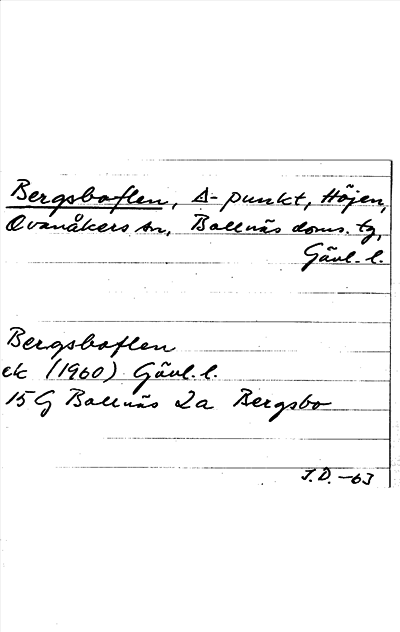 Bergsboflen, ∆-punkt, Höjen,
Ovanåkers sn, Bollnäs doms. tg,
Gävl. l.
Bergsboflen
ek (1960) Gävl. l.
15 G Bollnäs 2a Bergsbo
J.D. -63